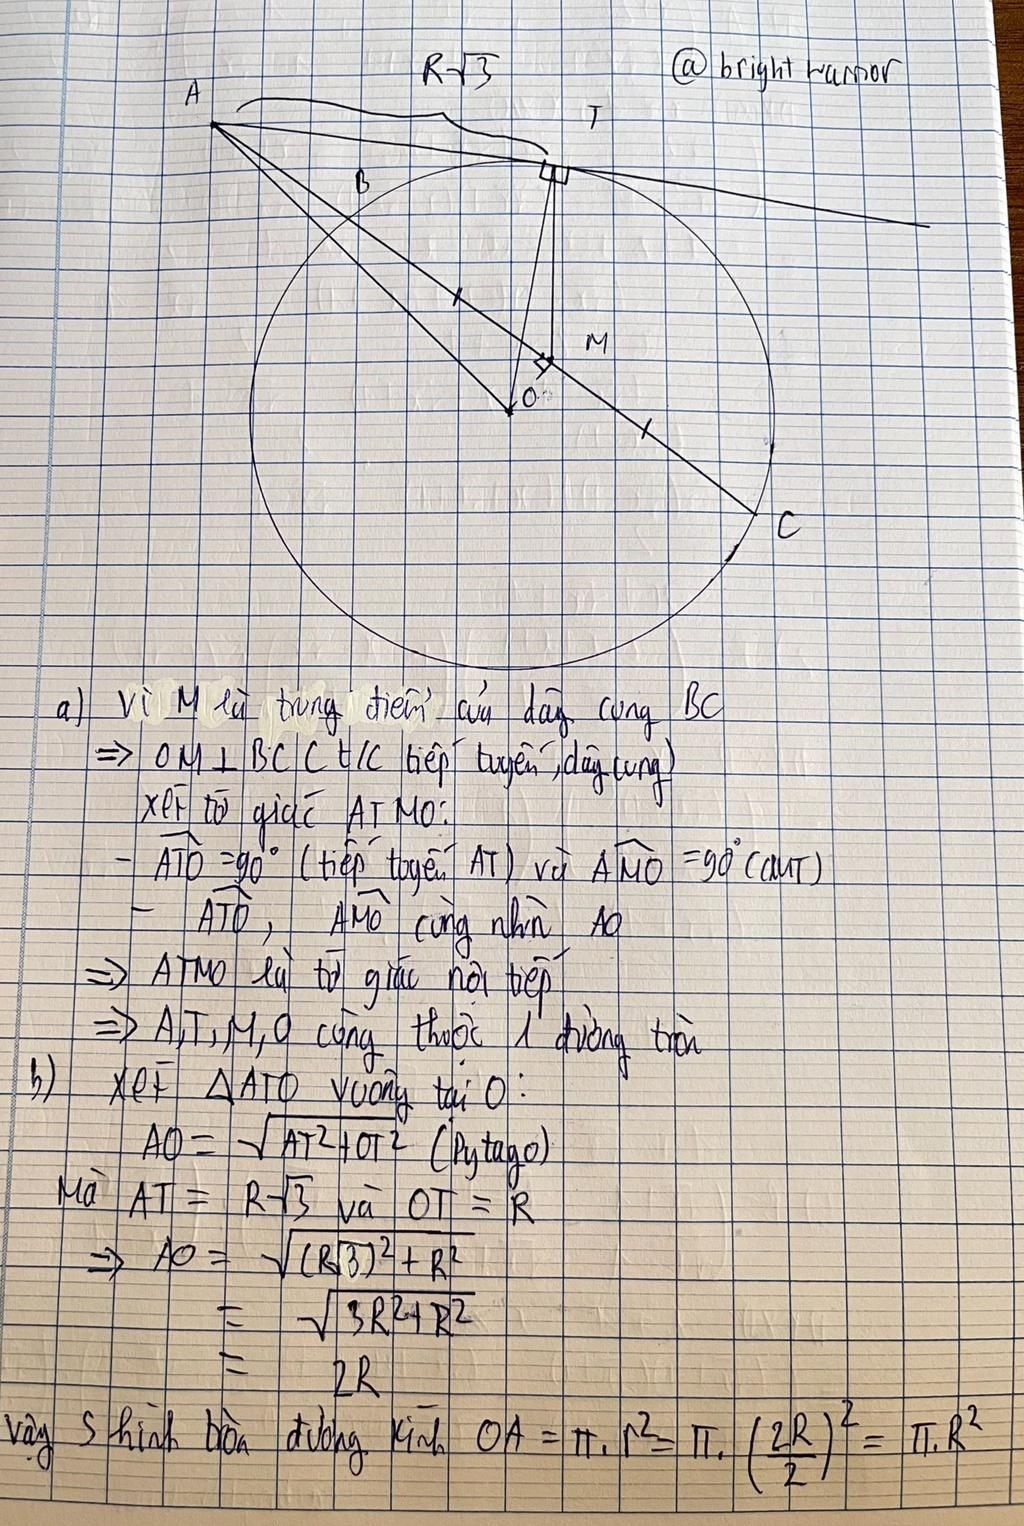 R√3
@bright warrior
A
T
B
M
O
C
a) Vì M là trung điểm của dây cung BC
=> OM ⊥ BC ( t/c tiếp tuyến, dây cung)
Xét tứ giác ATMO:
- ATO = 90° (tiếp tuyến AT) và AMO = 90° (CMT)
- ATO, AMO cùng nhìn AO
=> ATMO là tứ giác nội tiếp
=> A,T,M,O cùng thuộc 1 đường tròn
b) Xét ΔATO vuông tại O:
AO = √AT²+OT² (Pytago)
Mà AT = R√3 và OT = R
=> AO = √(R√3)²+R²
= √3R²+R²
= 2R
vậy S hình tròn đường kính OA = π.r² = π.(2R/2)² = π.R²